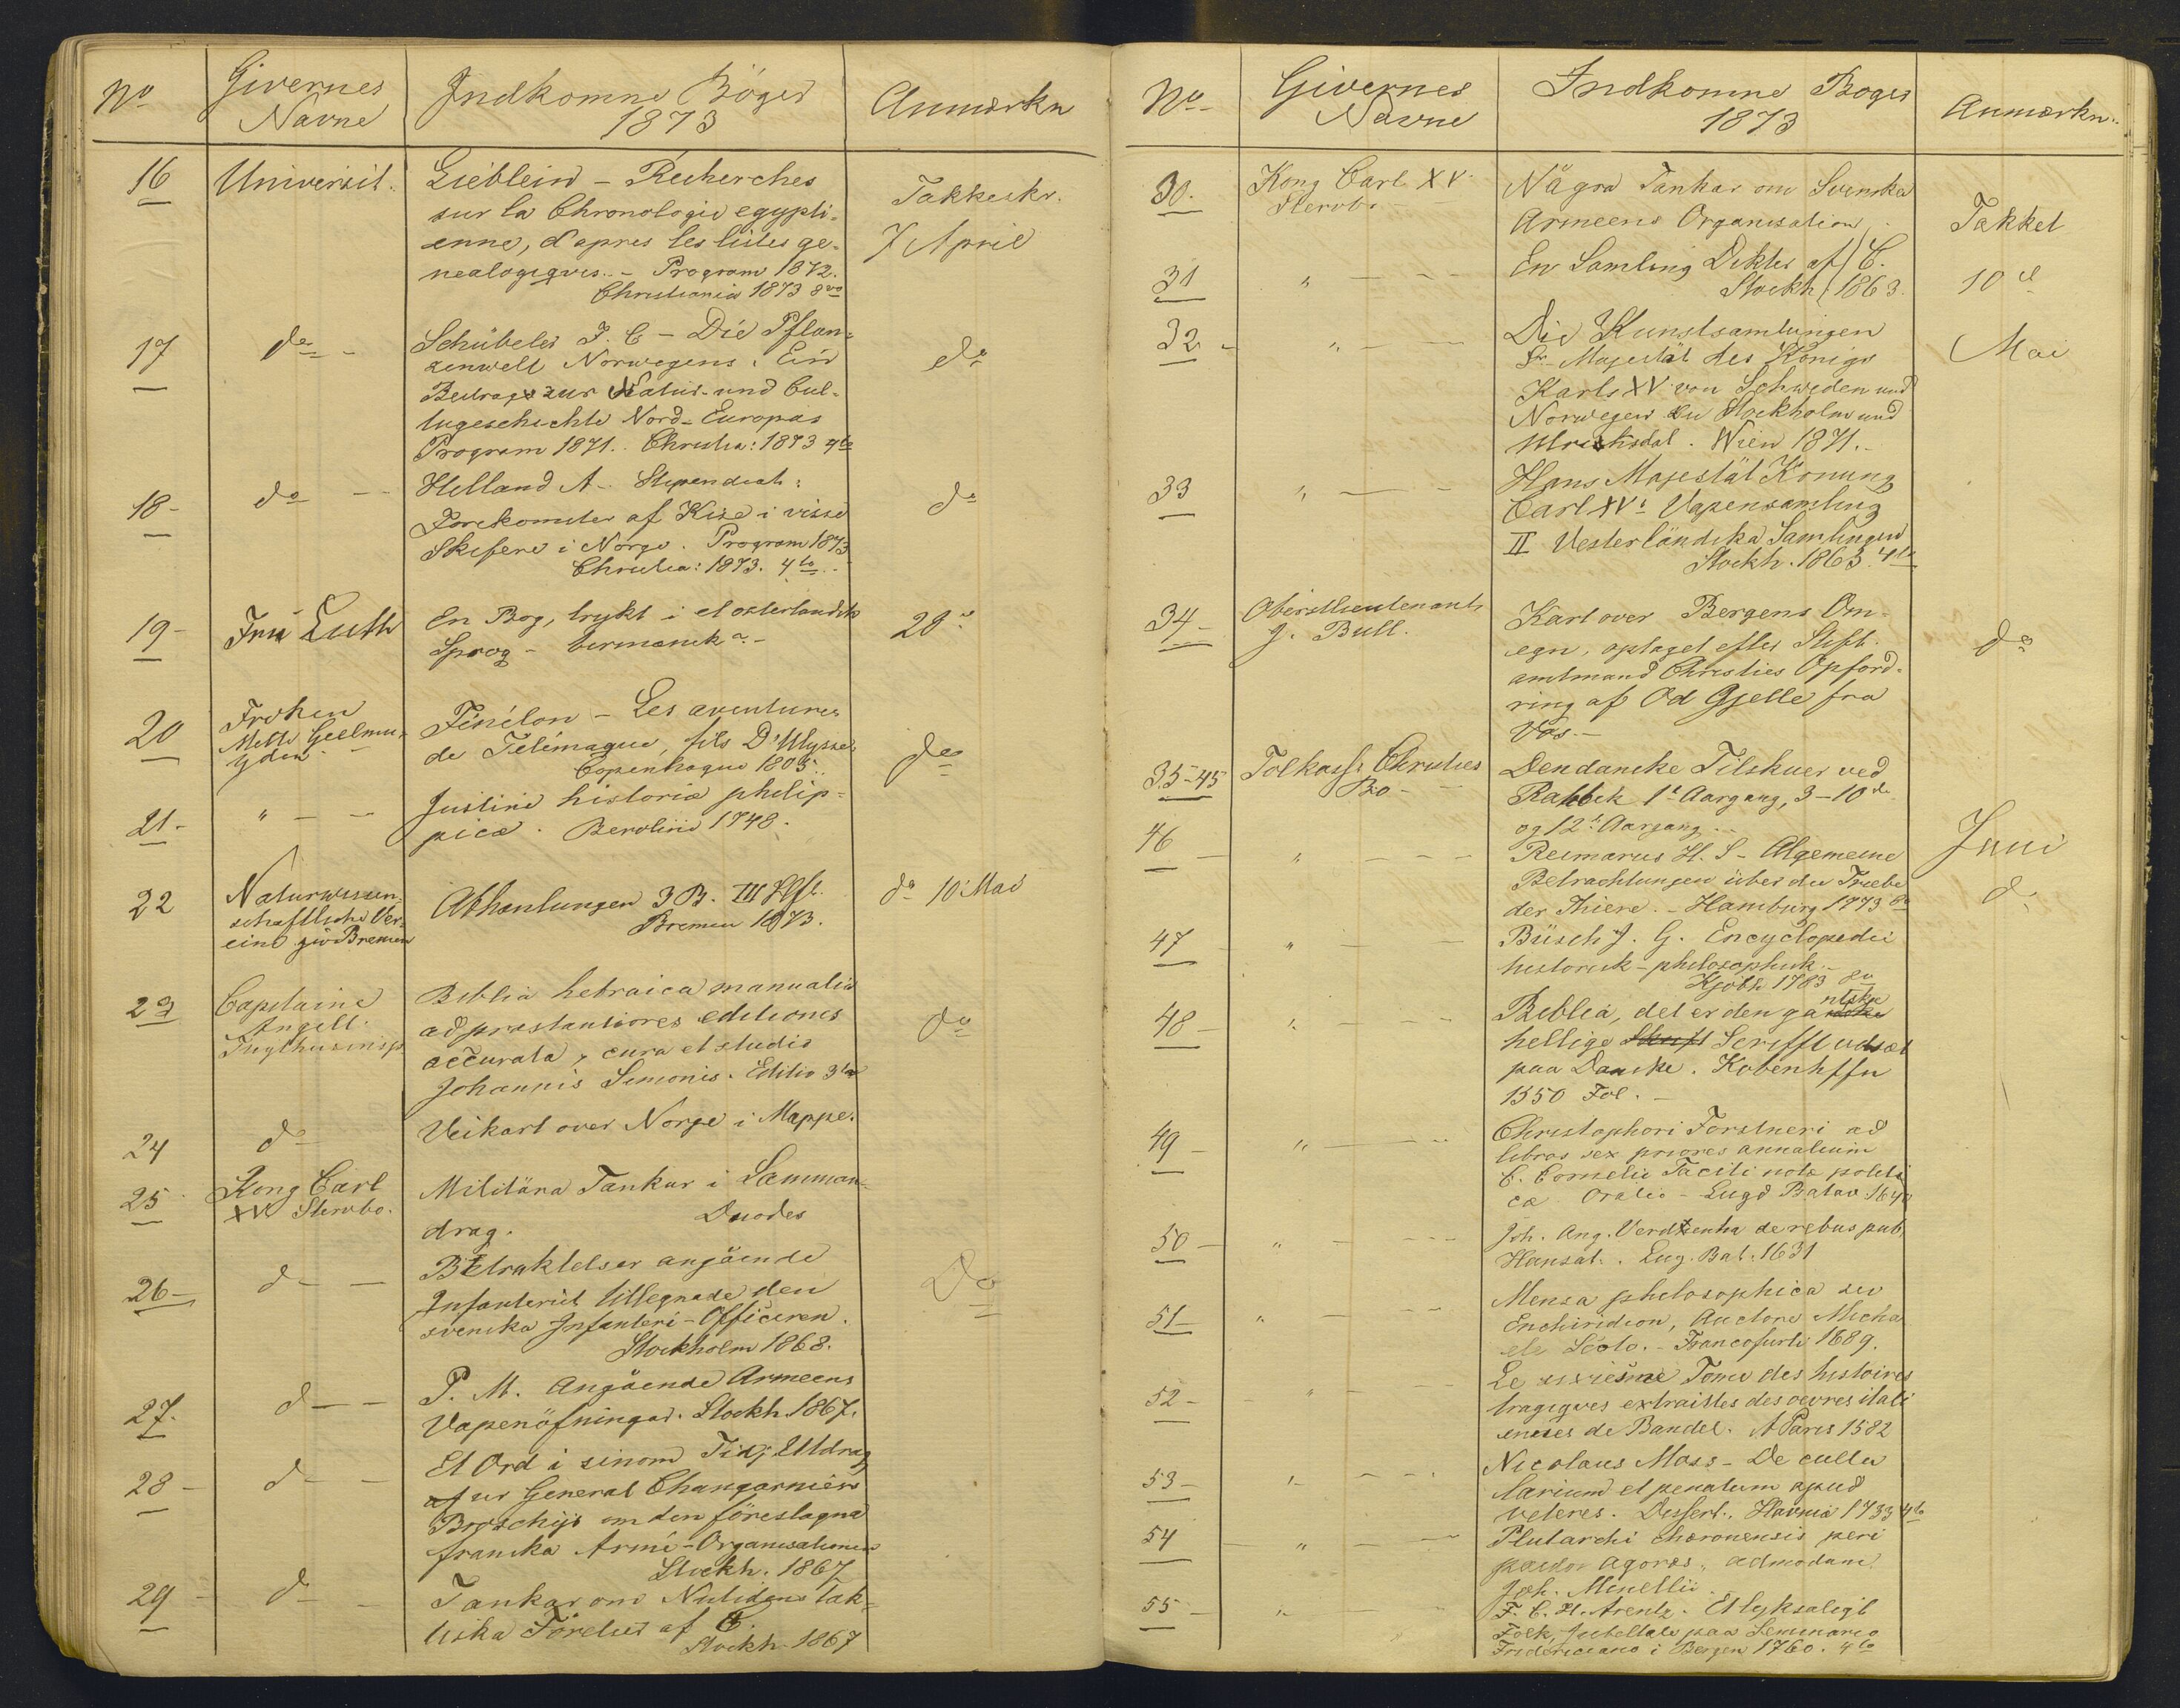 No
Givernes
Navne
Indkomne Böger
1873
Anmærkn
16
Universit.
Lieblein - Recherches
sur la Chronologie egypti-
enne, d'apres les listes ge-
nealogiqves. - Program 1872.
Christiania 1873 8vo
Takkeskr.
7 April
17
do -
Schübeler F. C - Die Pflan-
zenwelt Norwegens. Ein
Beitrag zur Natur- und Cul-
tugeschichte Nord-Europas
Program 1871. Christia: 1873 4to
do
18-
do -
Helland A - Stipendiat:
Forekomster af Kise i visse
Skifere i Norge. Program 1873
Christia: 1873. 4to
do
19-
Fru Luth
En Bog, trykt i et osterlandsk
Sprog - birmansk? -
28
20
Frøken
Mette Geelmu-
yden
Fénélon - Les aventures
de Telémaque, fils D'Ulysse,
Copenhague 1805.
do
21-
" - -
Justini historiæ philip-
picæ. Berolini 1748.
22
Naturwissen-
schaftliche Ver-
eine zu Bremen
Abhanlungen 3 B. III Hft.
Bremen 1873.
do 10 Mai
23
Capitaine
Angell.
Tugthusinsp.
Biblia hebraica manualia
ad præstantiores editiones
accurata, cura et studio
Johannis Simonis. Editio 3tia
do
24
do
Veikart over Norge i Mappe.
25
Kong Carl
XV Stervbo.
Militära Tankar i Samman-
drag. Duodes
26-
d -
Betraktelser angående
Infanteriet tillegnade den
svenska Infanteri-Officeren.
Stockholm 1868.
Do
27.
d - -
P. M. Angående Armeens
Vapenöfningar. Stockh. 1867.
28 -
d -
Et Ord i sinom Tid; Utdrag
af ur General Changarniérs
Broschyr om den föreslagna
franska Armé-Organisationen
Stockh. 1867
29 -
d -
Tankar om Nutidens tak-
tiska Förelser af C.
Stockh. 1867
No -
Givernes
Navne
Indkomne Boger
1873
Anmærkn.
30.
Kong Carl XV
Stervbo -
Några Tankar om Svenska
Armeens Organisation
Takket
31
" - - -
En Samling Dikter af C.
Stockh. 1863.
10 d
32 -
" - -
Die Kunstsamlungen
Sr. Majestät des Königs
Karls XV von Schweden und
Norwegen zu Stockholm und
Ulricksdal. Wien 1871.
Mai
33
" - -
Hans Majestät Konung
Carl XVs Vapensamling
II Vesterländska Samlingen
Stockh. 1863. 4to
34 -
Oberstlieutenant
J. Bull.
Kart over Bergens Om-
egn, optaget efter Stift-
amtmand Christies Opford-
ring af Od Gjelle fra
Vos. -
do
35-45
Tolkass: Christies
Bo -
Den danske Tilskuer ved
Rahbek 1e Aargang, 3-10de
og 12te Aargang.
Juni
46 -
" - - -
Reimarus H. S - Algemeine
Betrachtungen über die Triebe
der Thiere. - Hamburg 1773 8o
d
47
" - -
Büsch J. G. Encyclopedie
historisk-philosophisk. -
Kjöbh 1783 8vo
48 -
" - - -
Biblia, det er den ga ntske
hellige Scrifft udsæt
paa Danske. Kobenhffn
1550 Fol. -
49 -
" - - -
Christophori Forstneri ad
libros sex priores annalium
C. Cornelii Taciti notæ politi
cæ Oratio - Lugd Batav 164
50 -
" - - -
Joh. Ang. Verdenha de rebus pub.
Hansat. Lug. Bat. 1631
51 -
" - -
Mensa philosophica seu
Enchiridion, Auctore Micha
ele Scoto. - Francofurti 1689.
52 -
" - -
Le sixiesme Tome des histoires
tragiqves extraittes des oevres itali
ennes de Bandel. A Paris 1582
53 -
" - - .
Nicolaus Moss - De cultu
larium et penatum apud
veteres. Dissert. Havniæ 1733 4to
54
" - -
Plutarchi chæronensis peri
paidon agoges, admodum
Joh. Minellii.
55 -
" - -
F. C. H. Arentz. Et lyksaligt
Folk, Jubeltale paa Seminario
Fridericiano i Bergen 1760. 4to